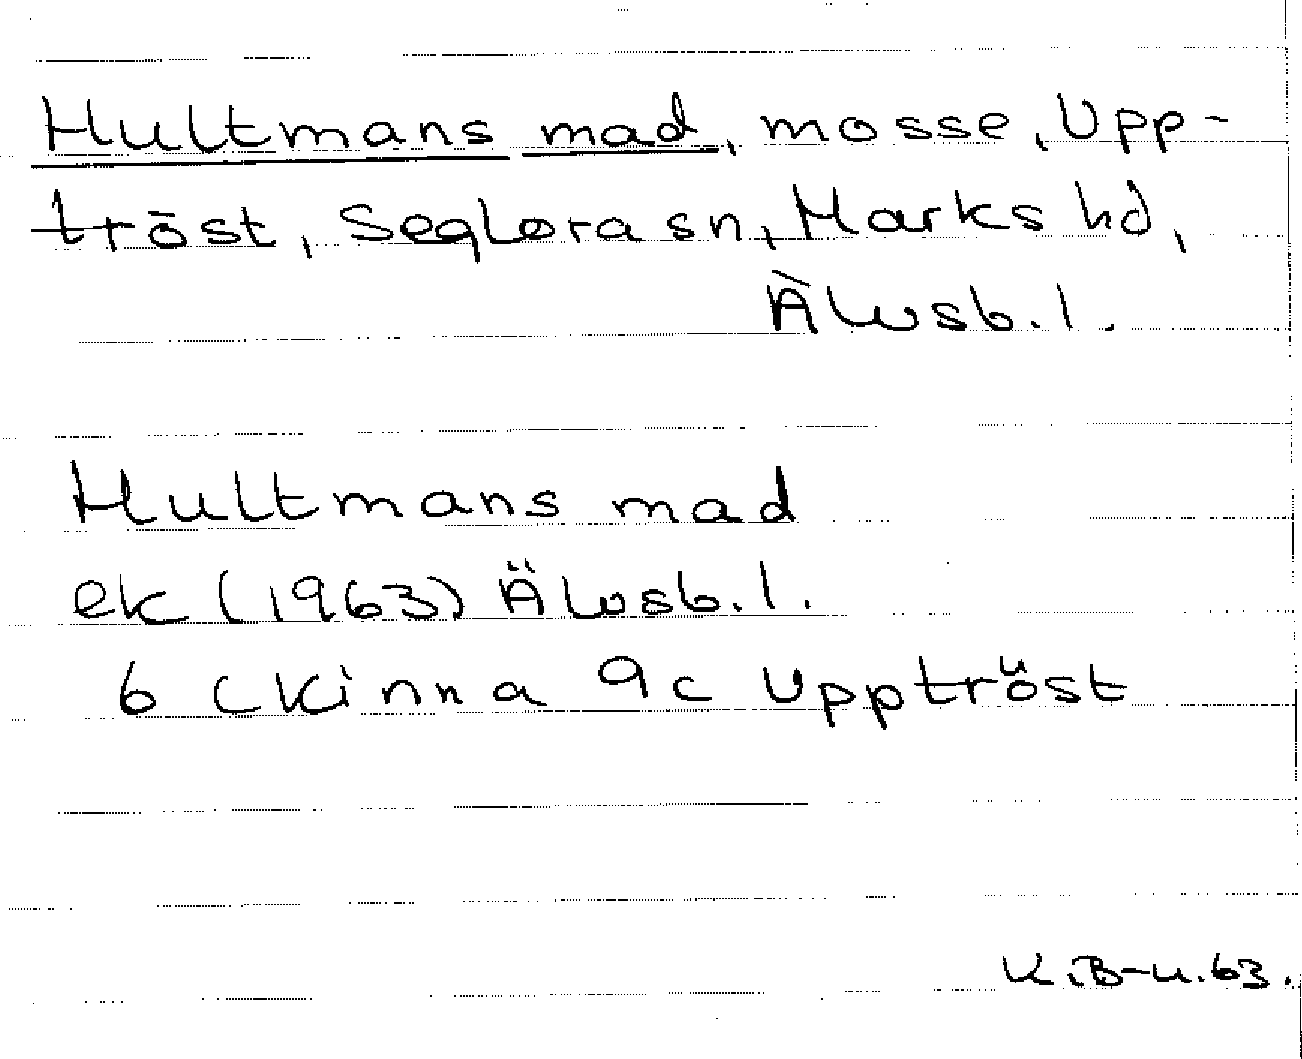 Hultmans mad, mosse, Upp-
tröst, Seglora sn, Marks hd,
Älvsb. l.
Hultmans mad
ek (1963) Älvsb. l.
6 C Kinna 9c Upptröst
K.B-u.63.